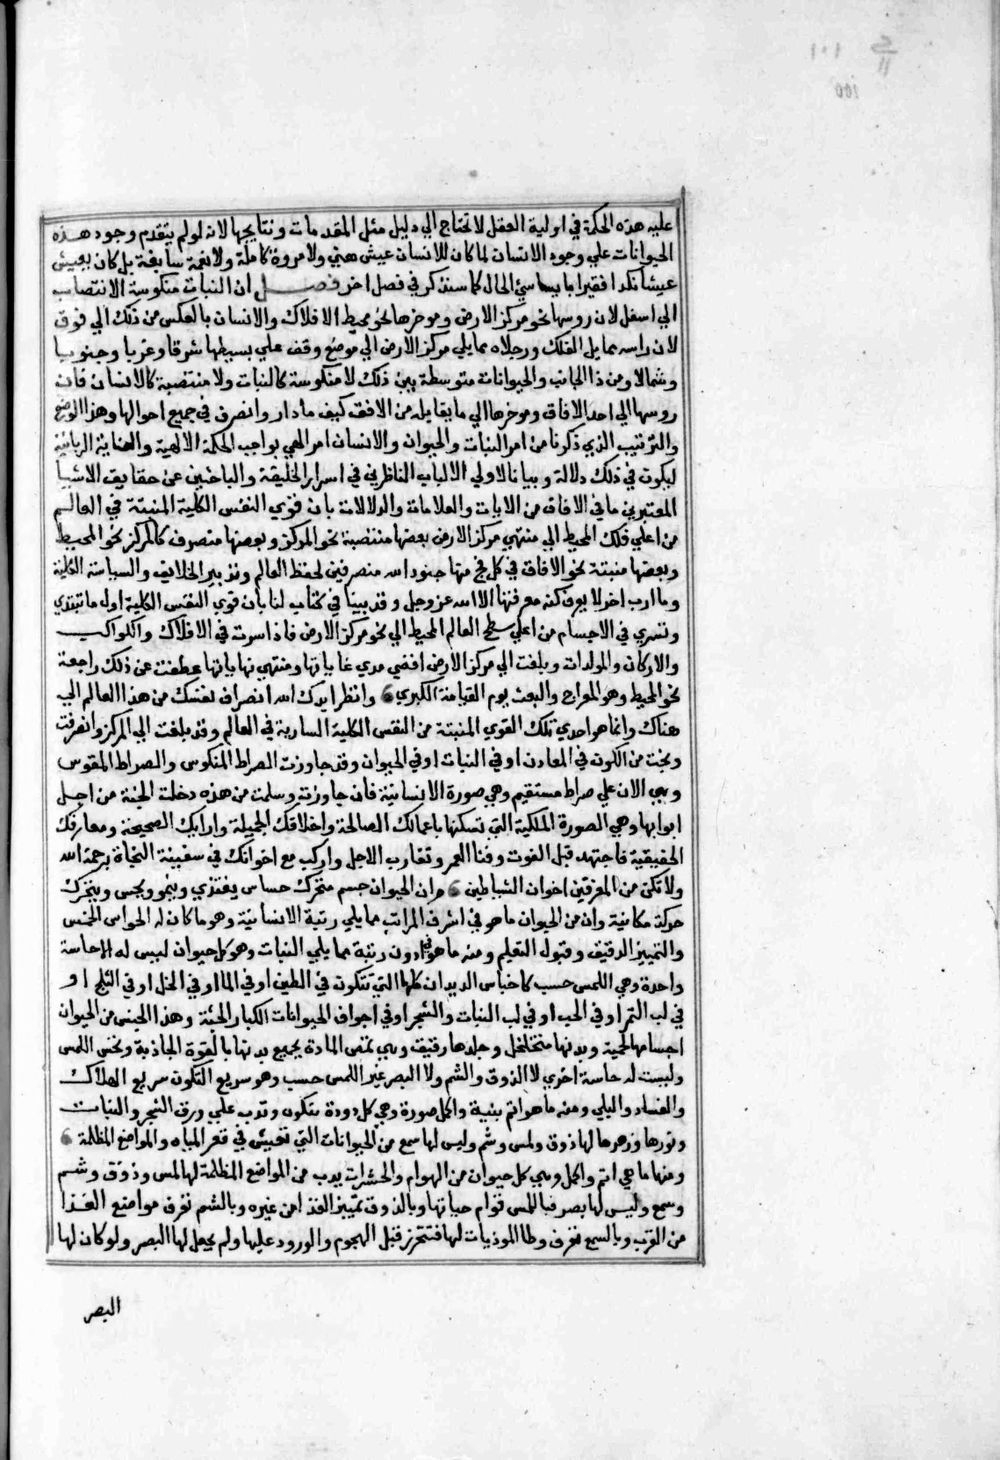 عليه هذه الحكمة في اولية العقل لا تحتاج الي دليل مثل المقدمات ونتايجها لانه لو لم يتقدم وجود هذه
الحيوانات علي وجود الانسان لما كان للانسان عيش هني ولا مروة كاملة ولا نعمة سابغة بل كان يعيش
عيشا نكدا فقيرا بايسا سيئ الحال كما سنذكر في فصل اخر فصل ان النبات منكوسة الانتصاب
الي اسفل لان روسها نحو مركز الارض وموخرها نحو محيط الافلاك والانسان بالعكس من ذلك الي فوق
لان راسه مما يلي الفلك ورجلاه مما يلي مركز الارض الي موضع وقف علي بسيطها شرقا وغربا وجنوبا
وشمالا ومن ذا الجانب والحيوانات متوسطة بين ذلك لا منكوسة كالنبات ولا منتصبة كالانسان فان
روسها الي احد الافاق وموخرها الي ما يقابله من الافق كيف ما دار وانصرف في جميع احوالها وهذا الوضع
والترتيب الذي ذكرنا من امر النبات والحيوان والانسان امر الهي بواجب الحكمة الالهية والعناية الربانية
ليكون في ذلك دلالة وبيانا لاولي الالباب الناظرين في اسرار الخليقة والباحثين عن حقايق الاشيا
المعتبرين ما في الافاق من الايات والعلامات والدلالات بان قوي النفس الكلية المنبثة في العالم
من اعلي فلك المحيط الي منتهي مركز الارض بعضها منتصبة نحو المركز وبعضها منصرف كالمركز نحو المحيط
وبعضها منبثة نحو الافاق في كل فج منها جنود الله منصرفين لحفظ العالم وتدبير الخلايق والسياسة الكلية
وماارب اخر لا يعرف كنه معرفتها الا الله عز وجل وقد بينا في كتاب لنا بان قوي النفس الكلية اول ما تبتدي
وتسري في الاجسام من اعلي سطح العالم المحيط الي نحو مركز الارض فاذا سرت في الافلاك والكواكب
والاركان والمولدات وبلغت الي مركز الارض اقصي مدي غاياتها ومنتهي نهاياتها عطفت عن ذلك راجعة
نحو المحيط وهو المعراج والبعث يوم القيامة الكبري وانظر ايدك الله انصراف نفسك من هذا العالم الي
هناك وانما هو احدي تلك القوي المنبثة من النفس الكلية السارية في العالم وقد بلغت الي المركز وانصرفت
ونجت من الكون في المعادن او في النبات او في الحيوان وقد جاوزت الصراط المنكوس والصراط المقوس
وهي الان علي صراط مستقيم وهي صورة الانسانية فان جاوزته وسلمت من هذه دخلت الجنة من اجل
ابوابها وهي الصورة الملكية التي تسكنها باعمالك الصالحة واخلاقك الجميلة وارايك الصحيحة ومعارفك
الحقيقية فاجتهد قبل الفوت وفنا العمر وتقارب الاجل واركب مع اخوانك في سفينة النجاة برحمة الله
ولا تكن من المغرقين اخوان الشياطين وان الحيوان جسم متحرك حساس يغتذي وينمو ويحس ويتحرك
حركة مكانية وان من الحيوان ما هو في اشرف المراتب مما يلي رتبة الانسانية وهو ما كان له الحواس الخمس
والتمييز الدقيق وقبول التعليم ومنه ما هو في ادون رتبة مما يلي النبات وهو كل حيوان ليس له الا حاسة
واحدة وهي اللمس حسب كاجناس الديدان كلها التي تتكون في الطين او في الماء او في الخل او في الثلج او
في لب الثمر او في الحب او في لب النبات والشجر او في اجواف الحيوانات الكبار الجثة وهذا الجنس من الحيوان
اجسامها لحمية وبدنها متخلخل وجلدها رقيق وهي تمتص المادة بجميع بدنها بالقوة الجاذبة وتحس اللمس
وليست له حاسة اخري لا الذوق والشم ولا البصر غير اللمس حسب وهو سريع التكون سريع الهلاك
والفساد والبلي ومنه ما هو اتم بنية واكمل صورة وهي كل دودة تتكون وتدب علي ورق الشجر والنبات
ونورها وزهرها لها ذوق ولمس وشم وليس لها سمع من الحيوانات التي تعيش في قعر المياه والمواضع المظلمة
ومنها ما هي اتم واكمل وهي كل حيوان من الهوام والحشرات يدب من المواضع المظلمة لها لمس وذوق وشم
وسمع وليس لها بصر فباللمس قوام حياتها وبالذوق تميز الغذا من غيره وبالشم تعرف مواضع الغذا
من القرب وبالسمع تعرف وطا الموذيات لها فتتحرز قبل الهجوم والورود عليها ولم يجعل لها البصر ولو كان لها
البصر